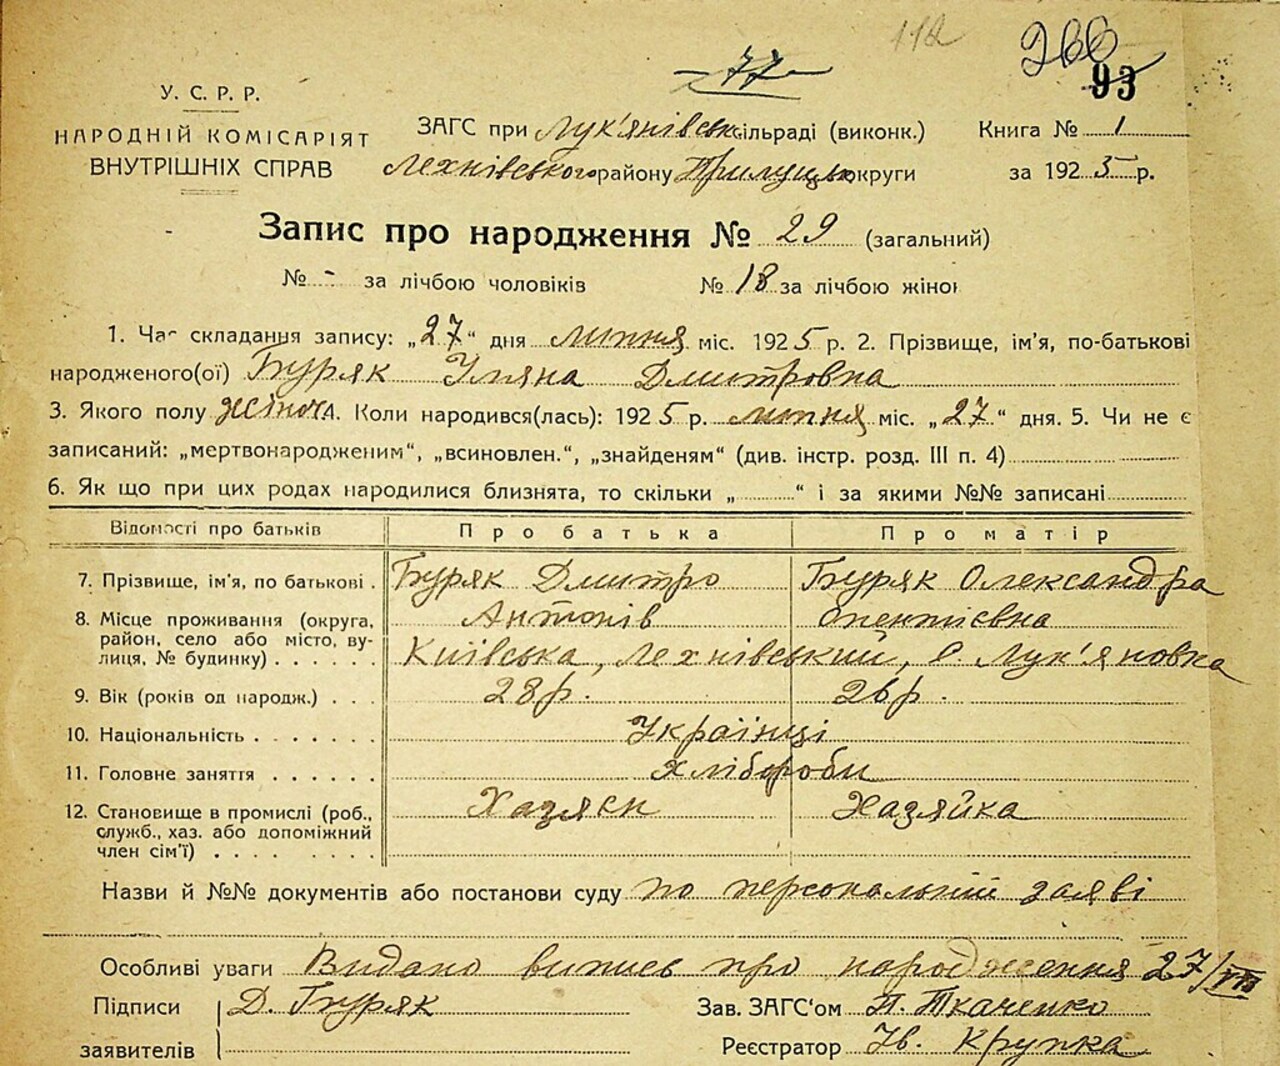 112
266
77
93
У. С. Р. Р.
НАРОДНІЙ КОМІСАРІЯТ
ВНУТРІШНІХ СПРАВ
ЗАГС при Лук'янівськ. сільраді (виконк.)
Лехнівського району Прилуцьк. округи
Книга № 1
за 1925 р.
Запис про народження № 29 (загальний)
№ - за лічбою чоловіків № 18 за лічбою жінок
1. Час складання запису: „27“ дня липня міс. 1925 р. 2. Прізвище, ім'я, по-батькові
народженого(ої) Буряк Уляна Дмитровна
3. Якого полу жіноч. 4. Коли народився(лась): 1925 р. липня міс. „27“ дня. 5. Чи не є
записаний: „мертвонародженим“, „всиновлен.“, „знайденям“ (див. інстр. розд. III п. 4)
6. Як що при цих родах народилися близнята, то скільки „ “ і за якими №№ записані
Відомості про батьків Про батька Про матір
7. Прізвище, ім'я, по батькові . Буряк Дмитро Буряк Олександра
Антонів
8. Місце проживання (округа,
район, село або місто, ву-
лиця, № будинку) . . . . . . Київська, Лехнівський, с. Лук'яновка
9. Вік (років од народж.) . . . 28 р. 26 р.
10. Національність . . . . . . . Українці
11. Головне заняття . . . . . . Хлібороби
12. Становище в промислі (роб., Хазяєн Хазяйка
служб., хаз. або допоміжний
член сім'ї) . . . . . . . .
Назви й №№ документів або постанови суду по персональній заяві
Особливі уваги Видано випись про народження 27/VII
Підписи Д. Буряк Зав. ЗАГС'ом П. Ткаченко
заявителів Реєстратор Ів. Крупка